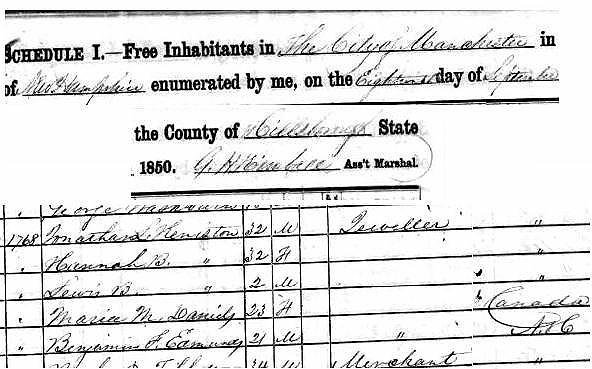 SCHEDULE I.—Free Inhabitants in The City of Manchester in
of New Hampshire enumerated by me, on the Eighteenth day of September
the County of Hillsborough State
1850. G. H. Kimball Ass't Marshal.
George
1768 Jonathan Heniston 32 M Jeweller "
" Hannah B. " 32 F "
" Lewis B. " 2 M "
" Maria M. Daniels 23 F " Canada
" Benjamin F. Edmunds 21 M " N.H
34 M Merchant "